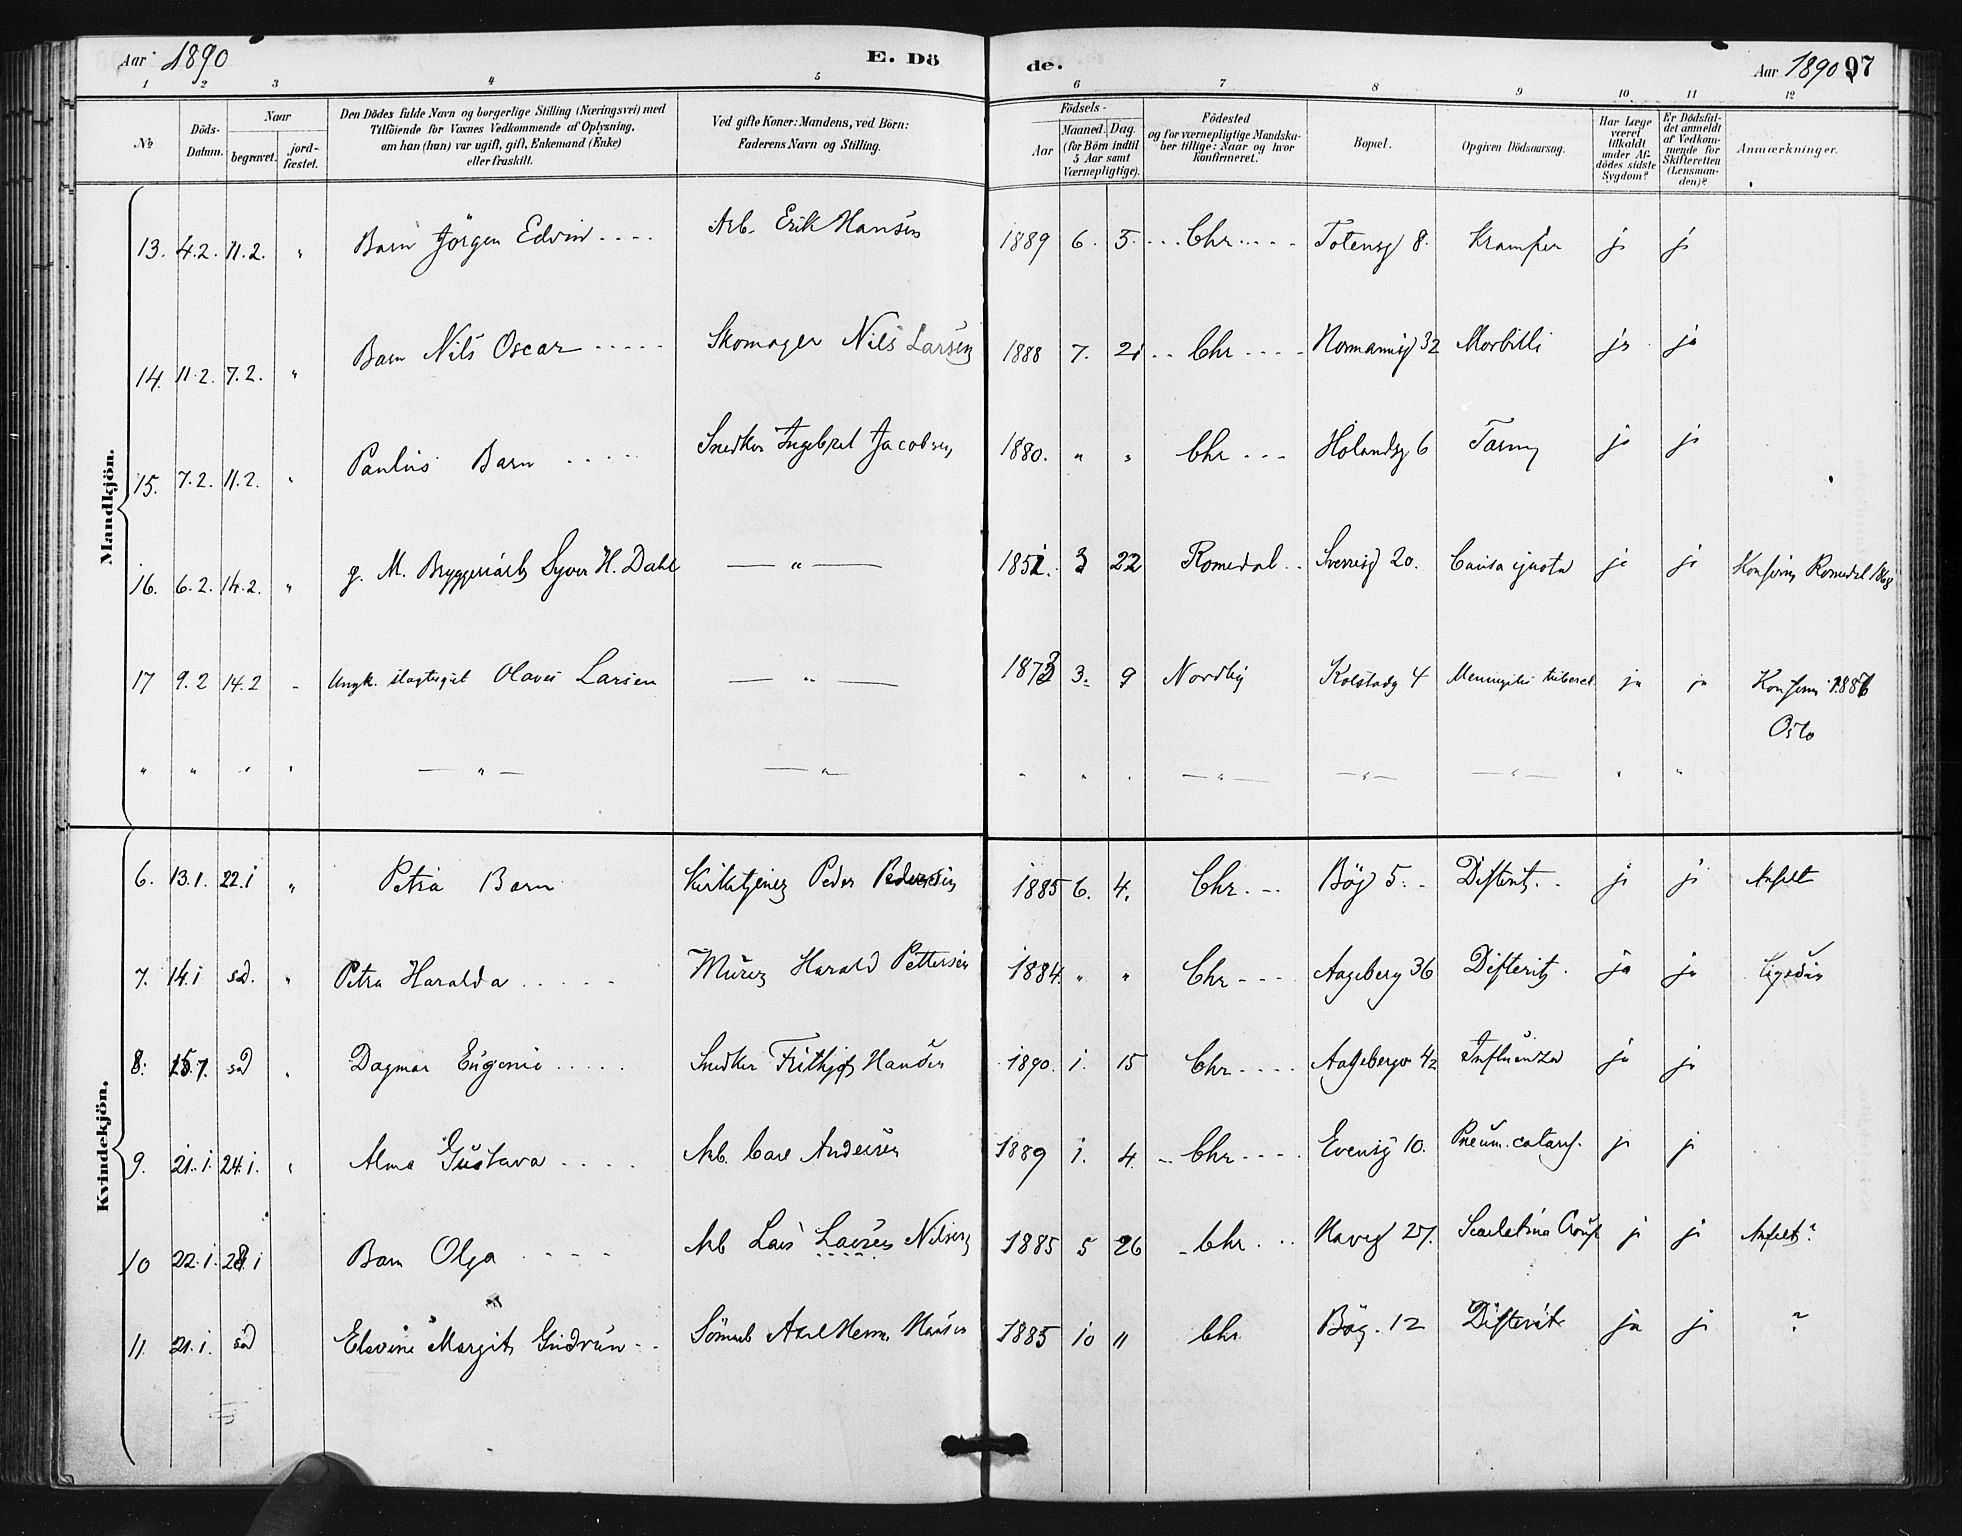 Aar 1890 E. Dö de. Aar 1890 97
1 2 3 4 5 6 7 8 9 10 11 12
№ Döds-Datum. Naar begravet. jord-fæstet. Den Dödes fulde Navn og borgerlige Stilling (Næringsvei) med Tilföiende for Voxnes Vedkommende af Oplysning, om han (hun) var ugift, gift, Enkemand (Enke) eller fraskilt. Ved gifte Koner: Mandens, ved Börn: Faderens Navn og Stilling. Födsels- Aar Maaned. Dag. (for Börn indtil 5 Aar samt Værnepligtige). Födested og for værnepligtige Mandskaber tillige: Naar og hvor konfirmeret. Bopæl. Opgiven Dödsaarsag. Har Læge været tilkaldt under Afdödes sidste Sygdom? Er Dödsfaldet anmeldt af Vedkommende for Skifteretten (Lensmanden)? Anmærkninger.
Mandkjön.
13. 4.2. 11.2. " Barn Jörgen Edvin .... Arb. Erik Hansen 1889 6. 5. ... Chr. .... Totensg 8. Kramper ja ja
14. 11.2. 7.2. " Barn Nils Oscar ..... Skomager Nils Larsen 1888 7. 21 .. Chr .... Normannsg 32 Morbilli ja ja
15. 7.2. 11.2. " Paulus Barn .... Snedker Ingebret Jacobsen 1880. " " Chr ... Hölandsg 6 ja ja
16. 6.2. 14.2. " g. M. Bryggeriarb Syver H. Dahl — " — 1851. 3 22 Romedal .. Sverresg 20. Causa ignota ja ja Konfirm Romedal 1868
17 9.2 14.2 - Ungk. Olaves Larsen — " — 1873 3. 9 Nordby Kolstadg. 4 Meningitis tubercl. ja ja Konfirm 1887
Oslo
" " " " — " — — " — " " " — " — — " — — " — " "
Kvindekjön.
6. 13.1. 22.1 " Petra Barn Kirketjener Peder Pedersen 1885 6. 4. Chr. -- Bög 5. Difterit. ja ja Anfelt
7. 14.1 sad. " Petra Haralda ..... Murer Harald Pettersen 1884. " " Chr --- Aageberg 36 Difterit. ja ja
8. 15.1. sad " Dagmar Eugenie ..... Snedker Frithjof Hansen 1890. 1. 15 Chr. .... Aagebergv 42 Influenza ja ja
9. 21.1. 24.1. " Alma Gustava .... Arb. Carl Andersen 1889 1. 4. .. Chr .... Evensg 10. Pneum. catarrh. ja ja
10 22.1. 28.1 Barn Olga .... Arb Lars Larsen Nilsen 1885 5 26 - Chr. .. Havng 27. Scarlatina Croup ja ja Anfelt?
11. 21.1. sad Elevine Margit Gudrun -- Sömmb Axel Herm. Hansen 1885 10 11 Chr. Bög. 12 Difterit ja ja ?